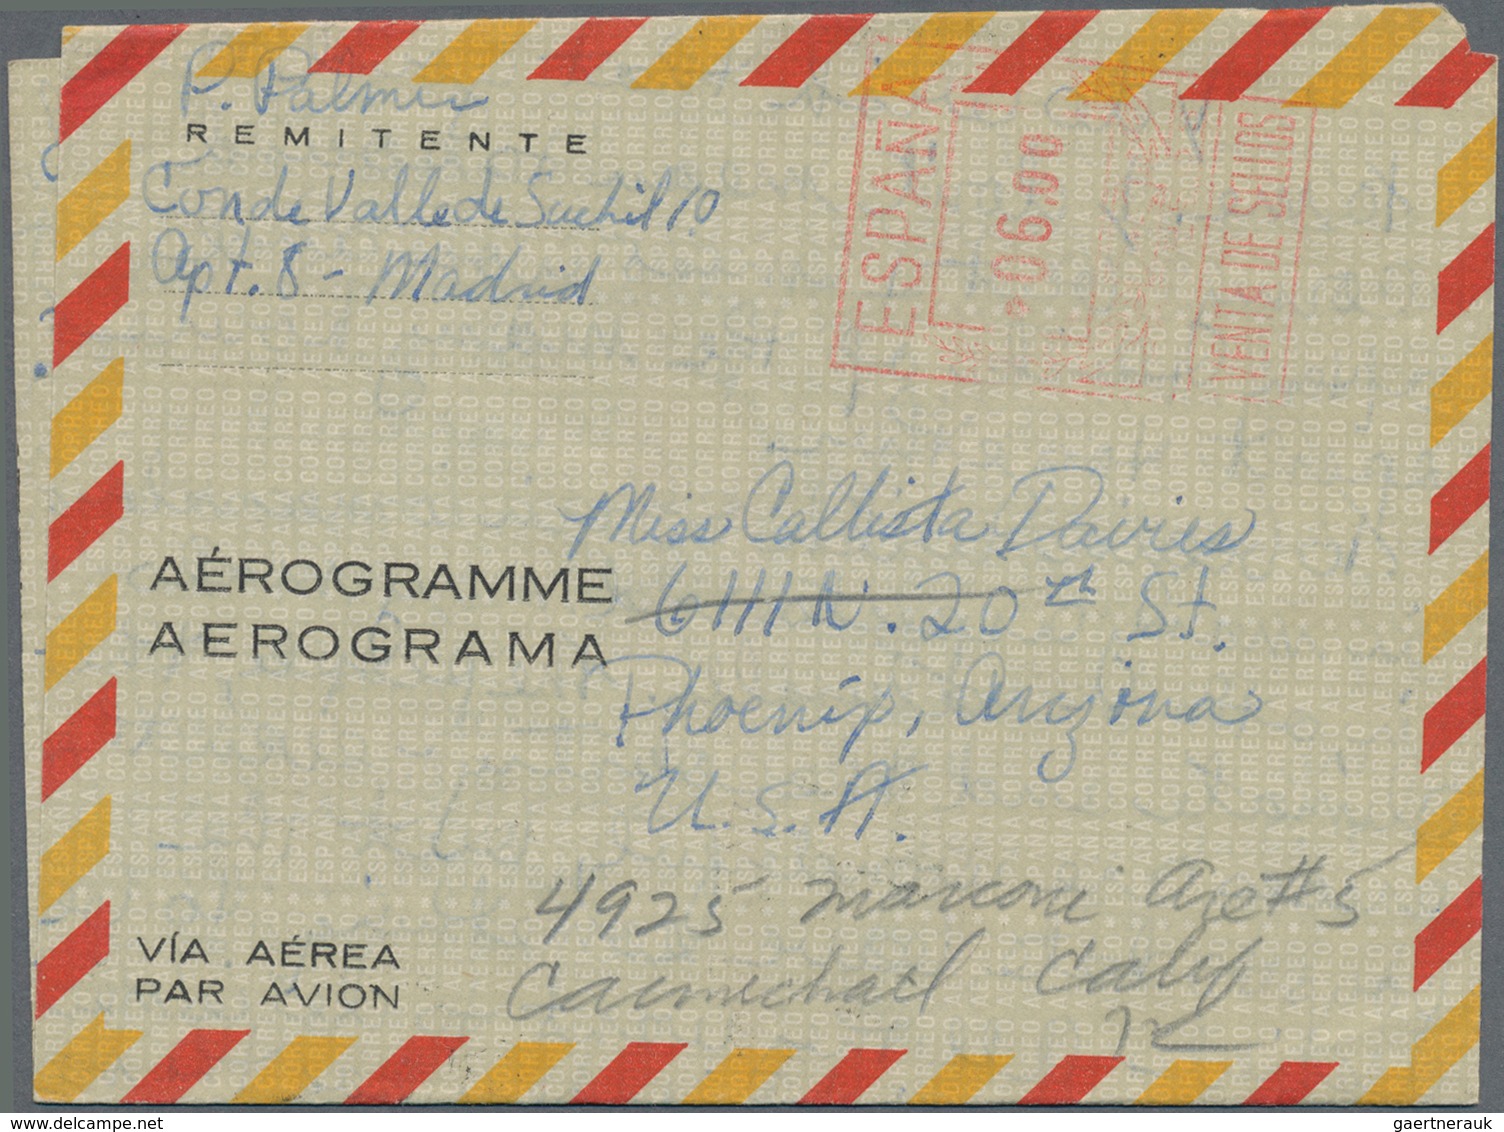 P. Palmer
REMITENTE
Conde Valle de Suchil 10
Apt. 8 - Madrid
ESPAÑA
*06.00
VENTA DE SELLOS
Miss Callista Davies
AÉROGRAMME
6111 N. 20th St.
AEROGRAMA
Phoenix, Arizona
U.S.A.
4925 Marconi Ave #5
VÍA AÉREA
Carmichael Calif
PAR AVION
delcampe.net
gaertnerauk